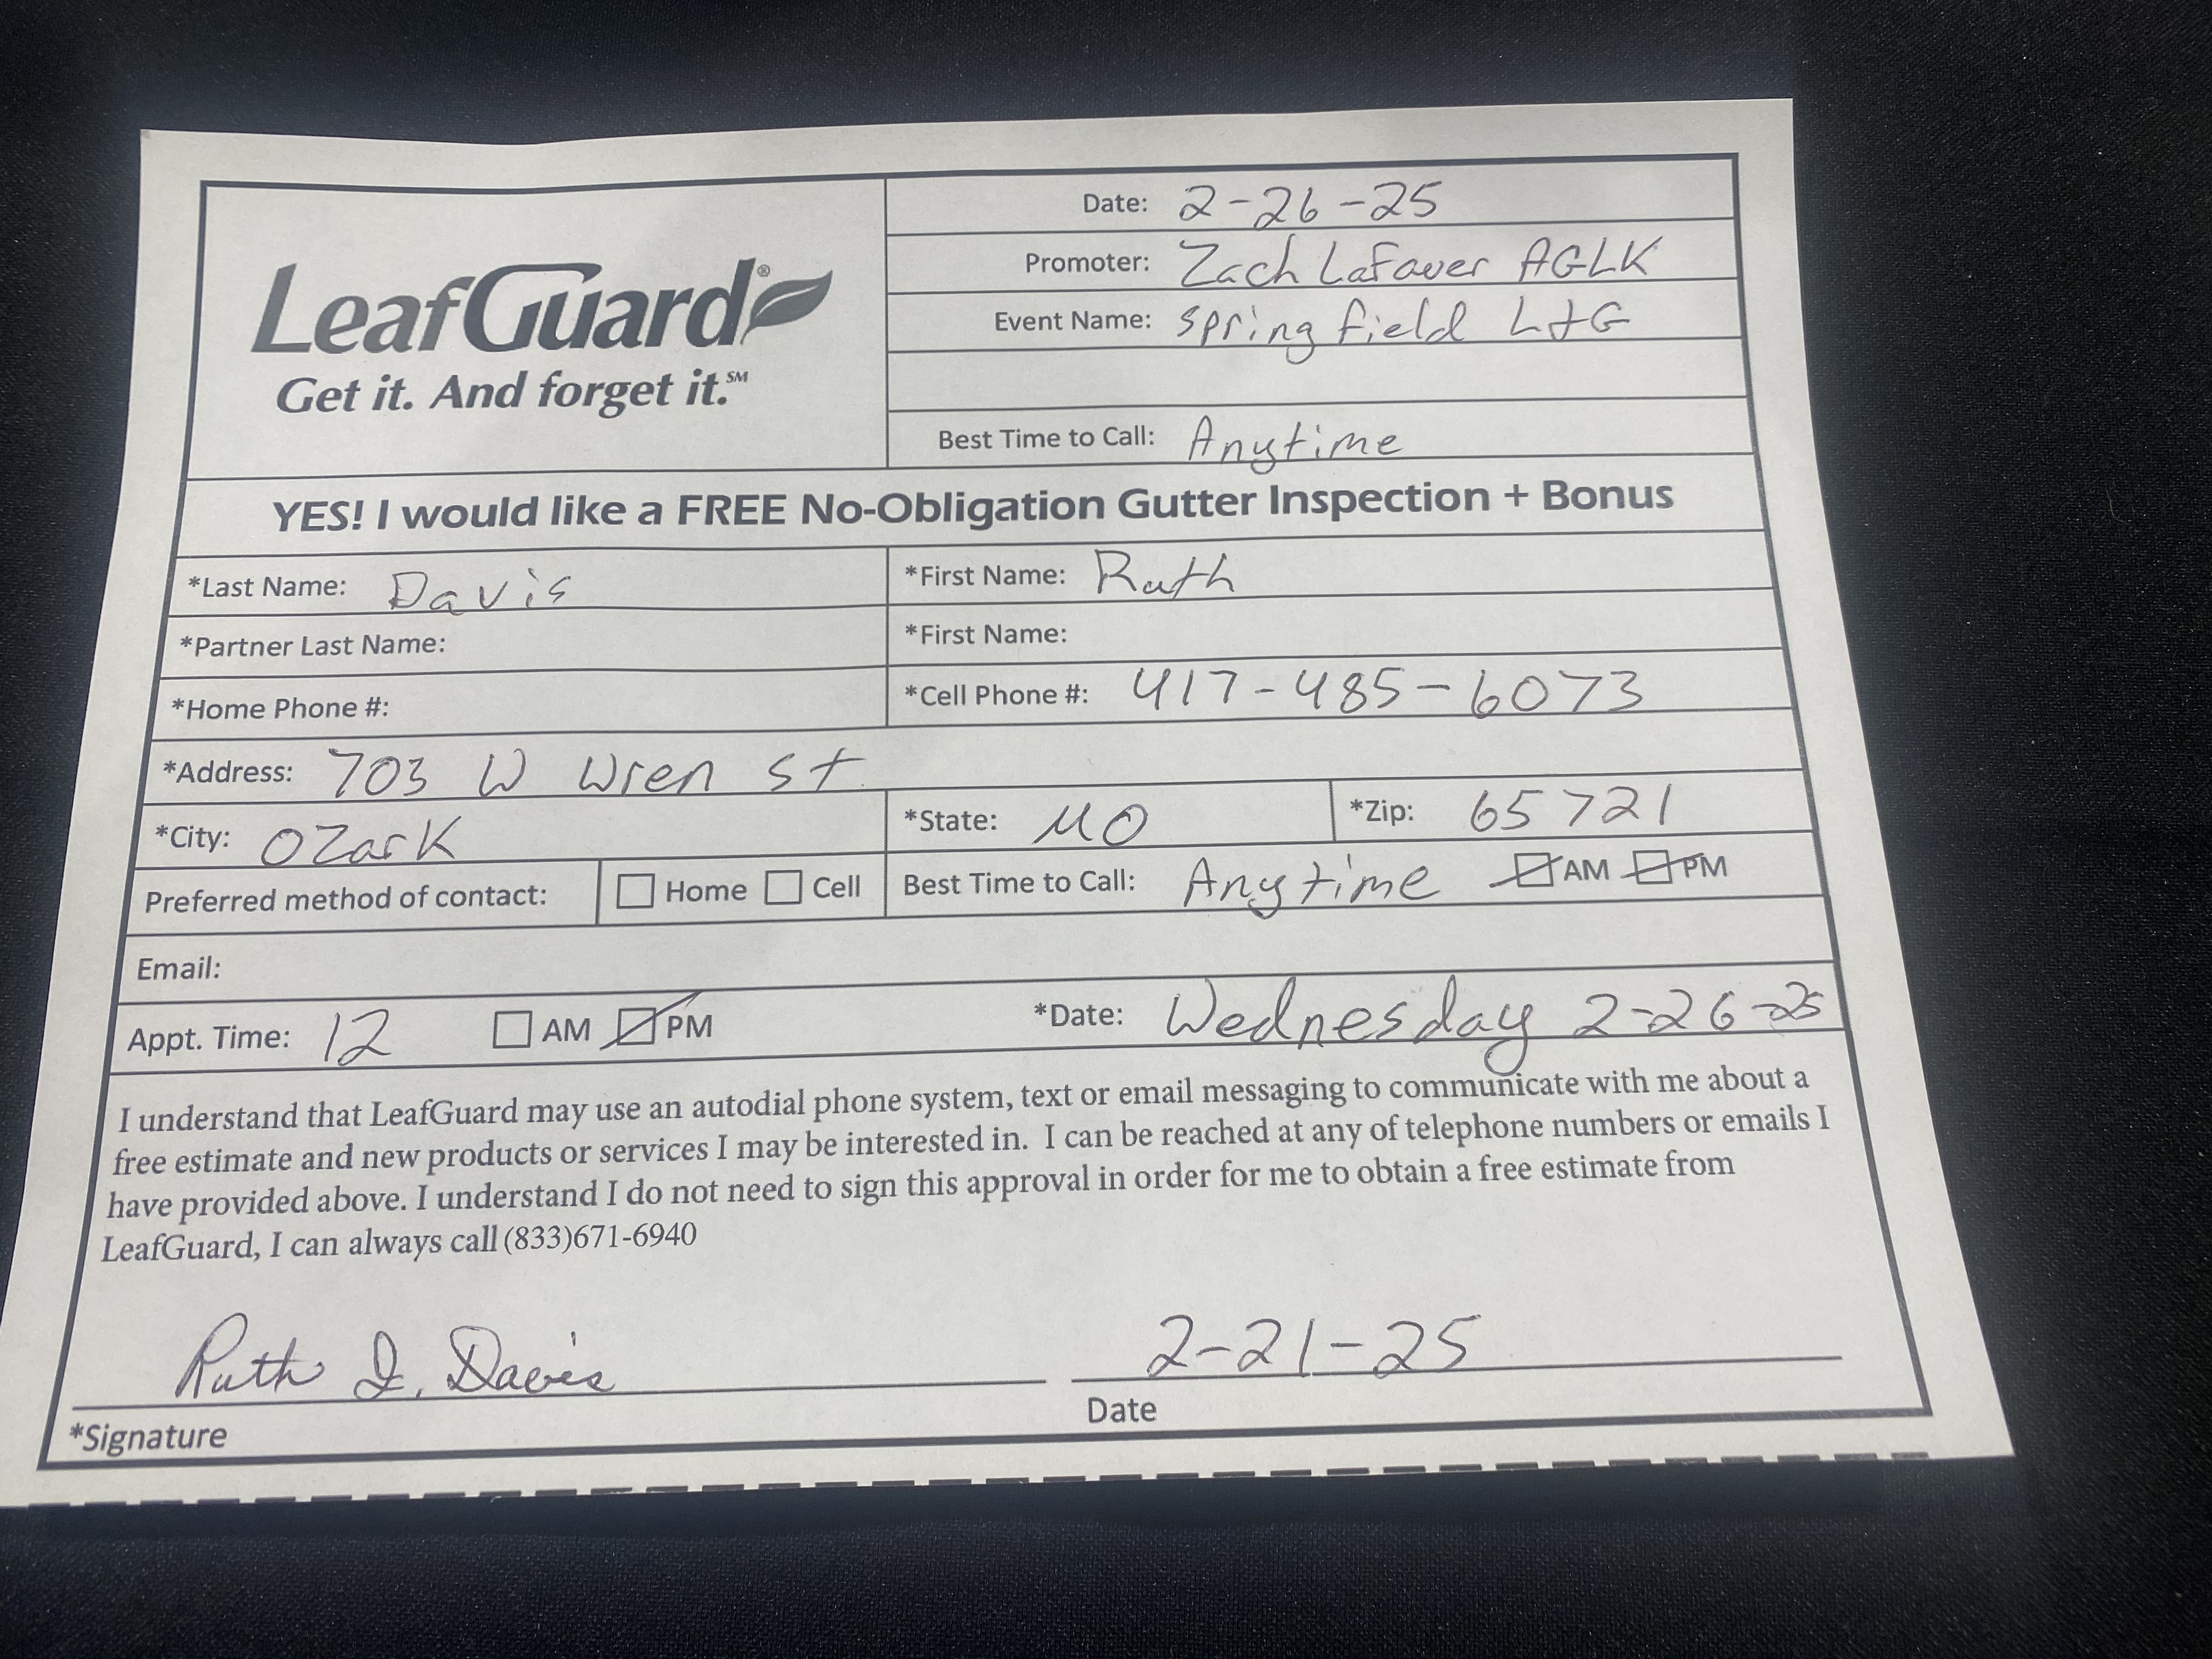 LeafGuard®
Get it. And forget it.℠
Date: 2-26-25
Promoter: Zach Lafaver AGLK
Event Name: Springfield L+G
Best Time to Call: Anytime
YES! I would like a FREE No-Obligation Gutter Inspection + Bonus
*Last Name: Davis *First Name: Ruth
*Partner Last Name: *First Name:
*Home Phone #: *Cell Phone #: 417-485-6073
*Address: 703 W Wren St
*City: OZark *State: MO *Zip: 65721
Preferred method of contact: ☐ Home ☐ Cell Best Time to Call: Anytime ☑ AM ☑ PM
Email:
Appt. Time: 12 ☐ AM ☑ PM *Date: Wednesday 2-26-25
I understand that LeafGuard may use an autodial phone system, text or email messaging to communicate with me about a
free estimate and new products or services I may be interested in. I can be reached at any of telephone numbers or emails I
have provided above. I understand I do not need to sign this approval in order for me to obtain a free estimate from
LeafGuard, I can always call (833)671-6940
Ruth I. Davis 2-21-25
*Signature Date